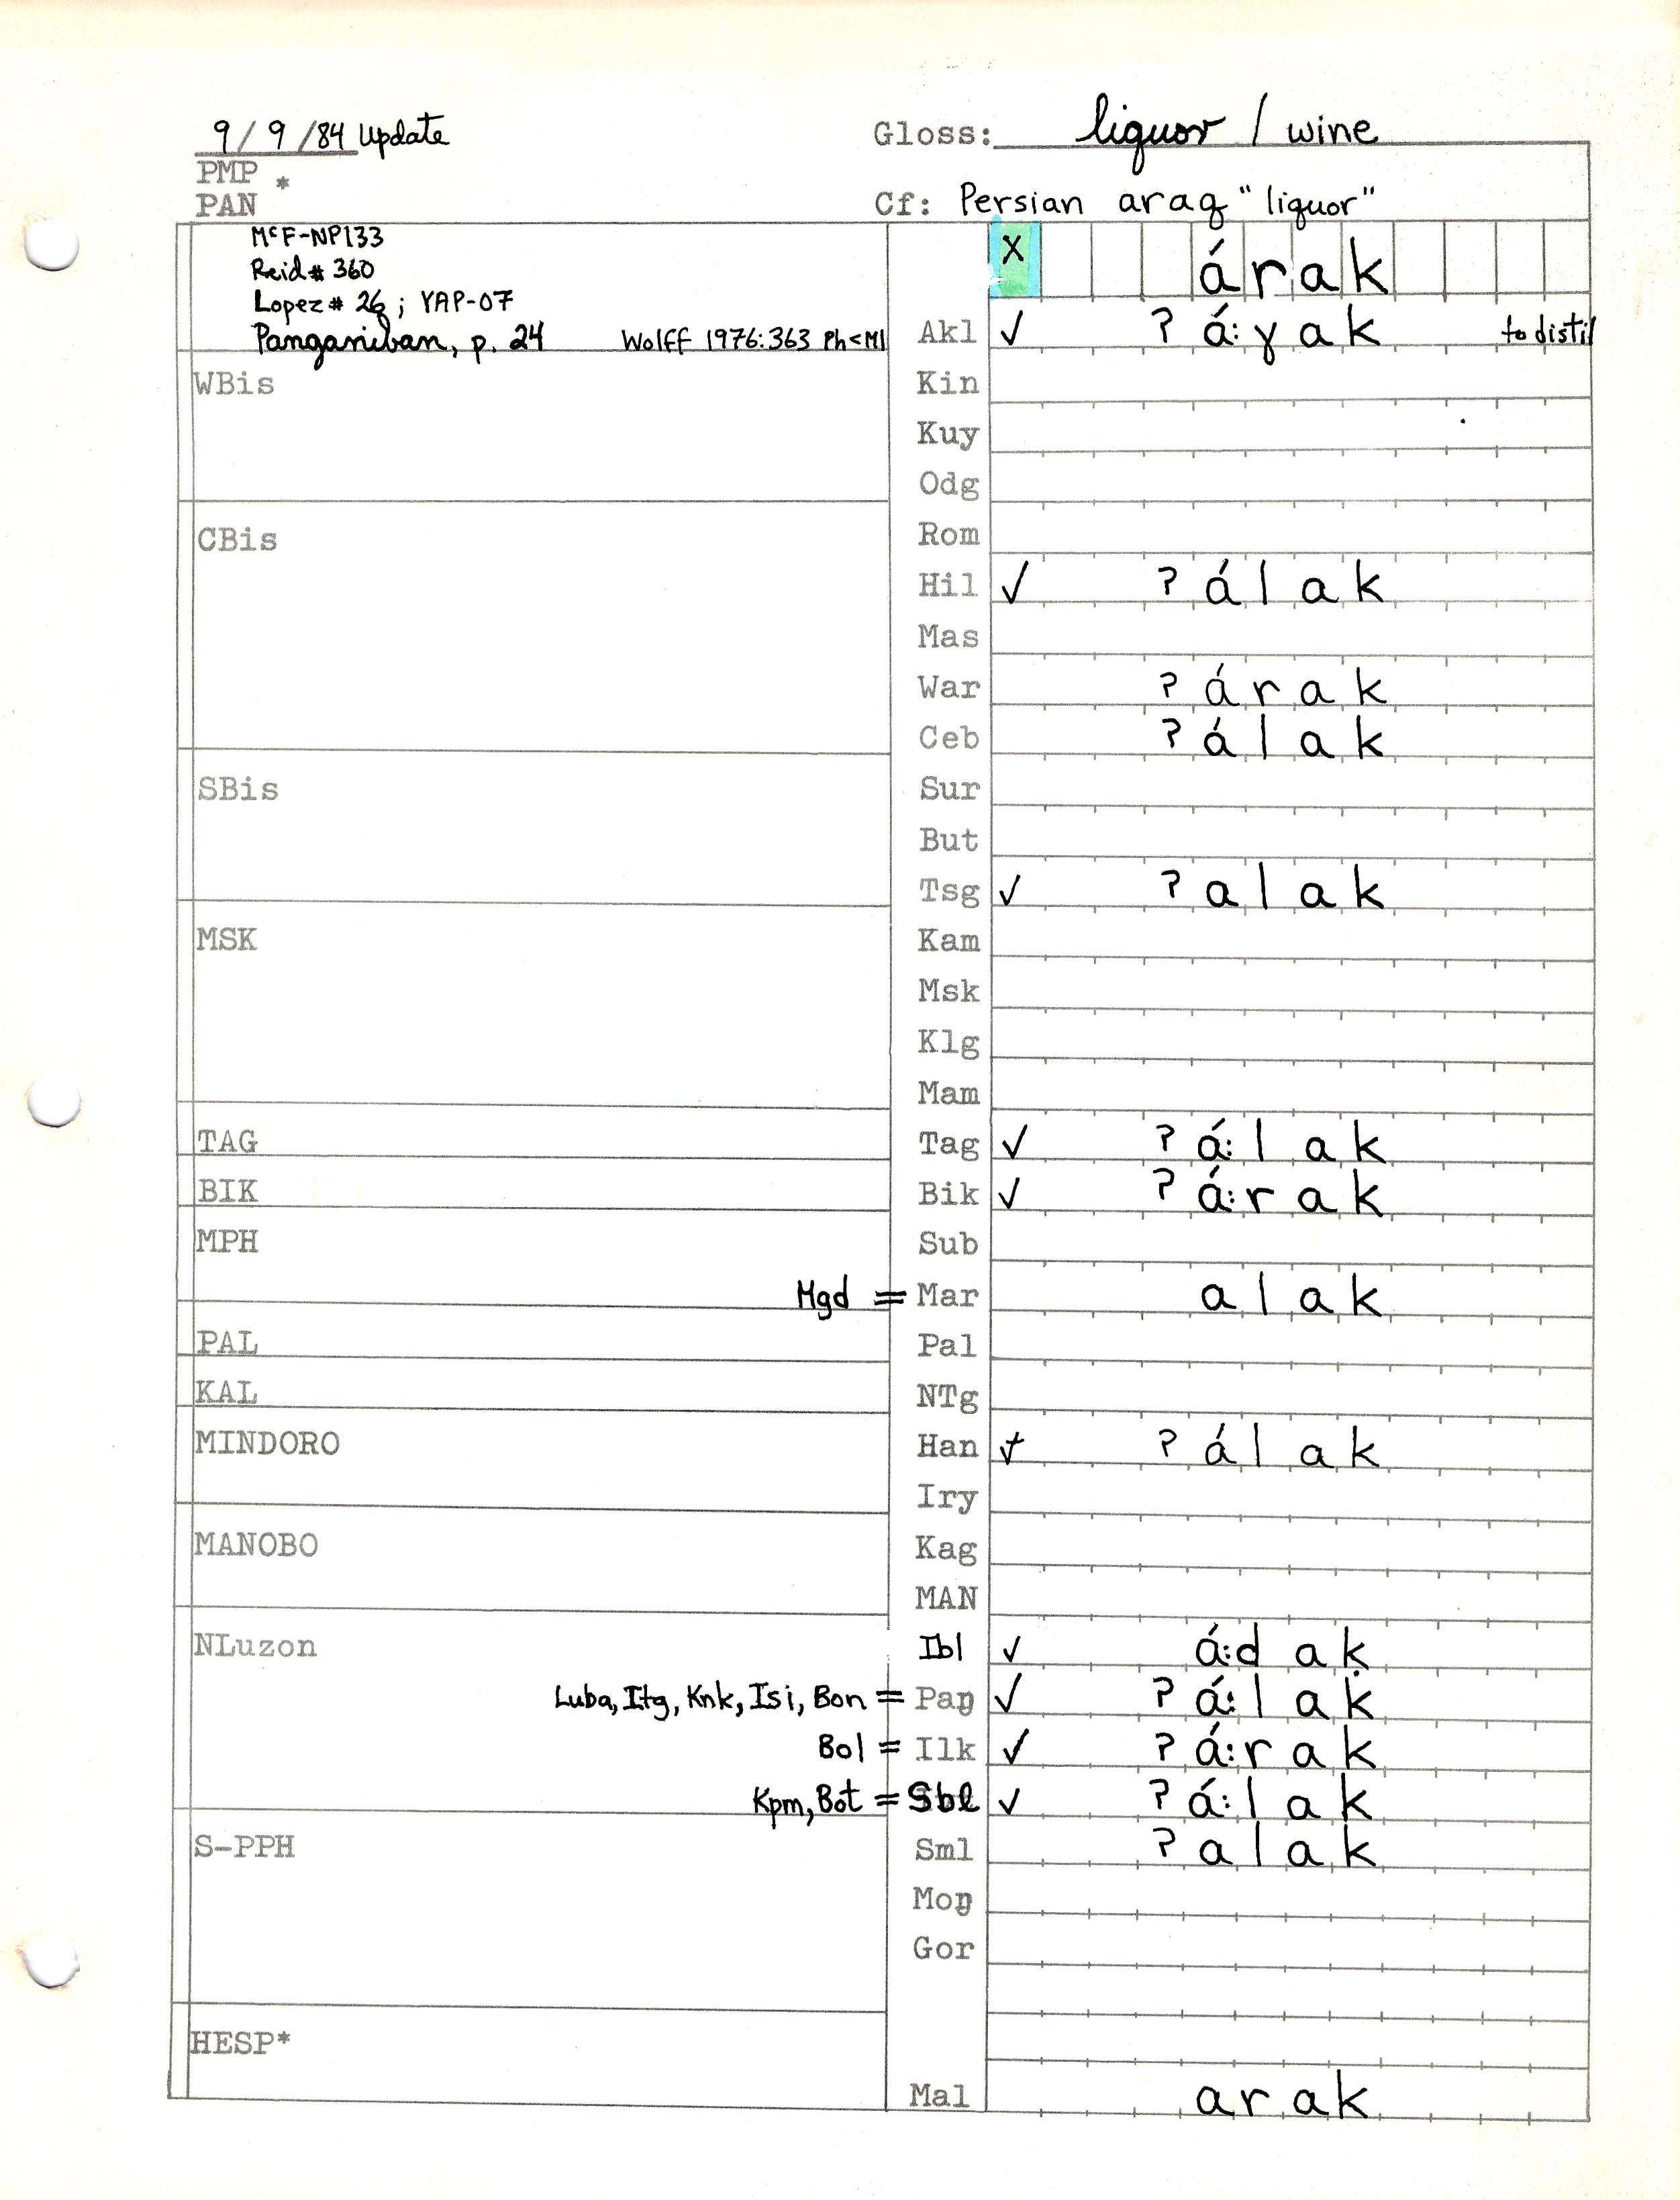 9/9/84 Update
Gloss: liquor / wine
PMP *
PAN
Cf: Persian araq "liquor"
McF-NP133
Reid# 360
Lopez# 26; YAP-07
Panganiban, p. 24 Wolff 1976:363 Ph<Ml
X árak
Akl ✓ ʔá:ɣak to distil
WBis
Kin
Kuy
Odg
CBis
Rom
Hil ✓ ʔálak
Mas
War ʔárak
Ceb ʔálak
SBis
Sur
But
Tsg ✓ ʔalak
MSK
Kam
Msk
Klg
Mam
TAG
Tag ✓ ʔá:lak
BIK
Bik ✓ ʔá:rak
MPH
Sub
Mgd = Mar alak
PAL
Pal
KAL
NTg
MINDORO
Han ✓ ʔálak
Iry
MANOBO
Kag
MAN
NLuzon
Ibl ✓ á:dak
Luba, Itg, Knk, Isi, Bon = Paŋ ✓ ʔá:lak
Bol = Ilk ✓ ʔá:rak
Kpm, Bot = Sbl ✓ ʔá:lak
S-PPH
Sml ʔalak
Moŋ
Gor
HESP*
Mal arak